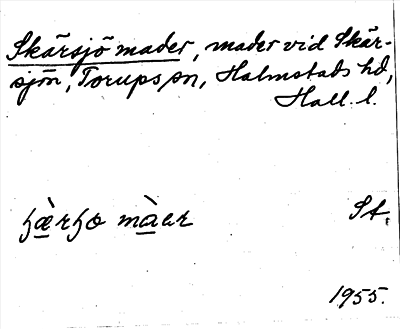 Skärsjö mader, mader vid Skär-
sjön, Torups sn, Halmstads hd,
Hall. l.
ꜧæ̀rꜧo màer St.
1955.